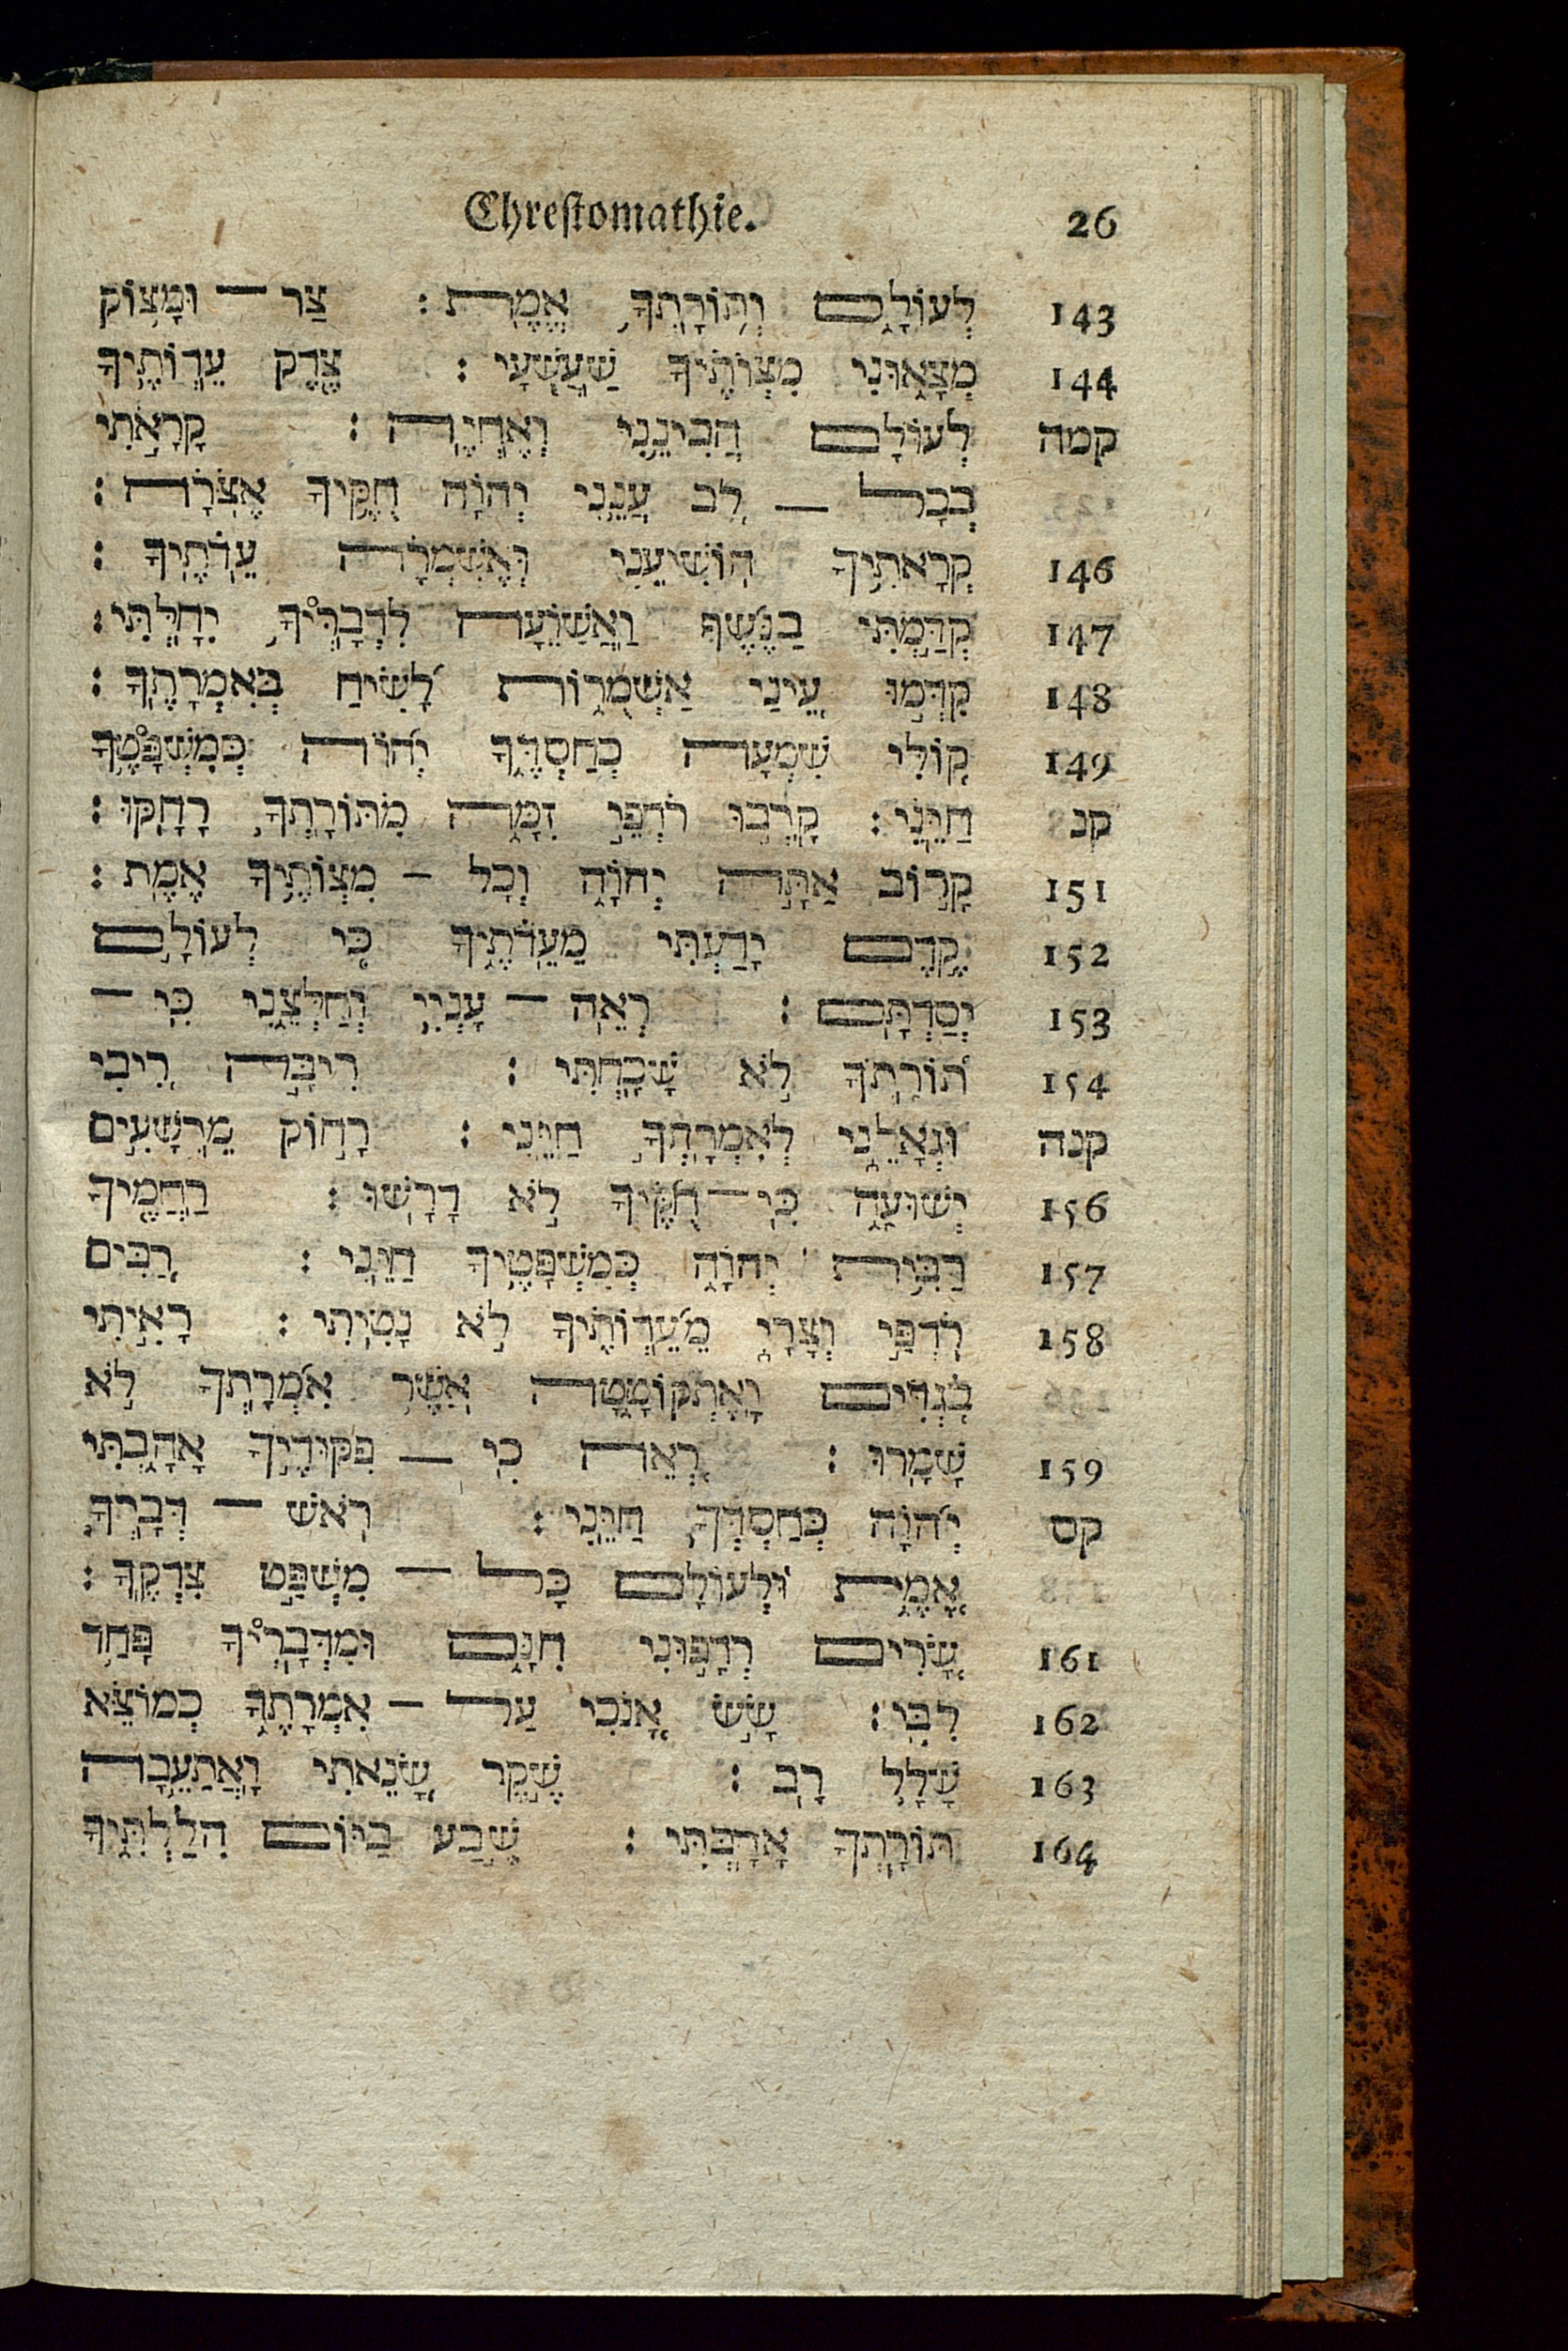 Chrestomathie. 26
143 לְעוֹלָם וְתוֹרָתְךָ אֱמֶת : צַר־וּמָצוֹק
144 מְצָאוּנִי מִצְוֹתֶיךָ שַׁעֲשֻׁעָי : צֶדֶק עֵדְוֹתֶיךָ
קמה לְעוֹלָם הֲבִינֵנִי וְאֶחְיֶה : קָרָאתִי
בְכָל־לֵב עֲנֵנִי יְהוָֹה חֻקֶּיךָ אֶצֹּרָה :
146 קְרָאתִיךָ הוֹשִׁיעֵנִי וְאֶשְׁמְרָה עֵדֹתֶיךָ :
147 קִדַּמְתִּי בַנֶּשֶׁף וָאֲשַׁוֵּעָה לִדְבָרְיךָ יִחָלְתִּי :
148 קִדְּמוּ עֵינַי אַשְׁמֻרוֹת לָשִׂיחַ בְּאִמְרָתֶךָ :
149 קוֹלִי שִׁמְעָה כְחַסְדֶּךָ יְהוָֹה כְּמִשְׁפָּטֶךָ
קנ חַיֵּנִי : קָרְבוּ רֹדְפֵי זִמָּה מִתּוֹרָתְךָ רָחָקוּ :
151 קָרוֹב אַתָּה יְהוָֹה וְכָל־מִצְוֹתֶיךָ אֱמֶת :
152 קֶדֶם יָדַעְתִּי מֵעֵדֹתֶיךָ כִּי לְעוֹלָם
153 יְסַדְתָּם : רְאֵה־עָנְיִי וְחַלְּצֵנִי כִּי־
154 תוֹרָתְךָ לֹא שָׁכָחְתִּי : רִיבָה רִיבִי
קנה וּגְאָלֵנִי לְאִמְרָתְךָ חַיֵּנִי : רָחוֹק מֵרְשָׁעִים
156 יְשׁוּעָה כִּי־חֻקֶּיךָ לֹא דָרָשׁוּ : רַחֲמֶיךָ
157 רַבִּים יְהוָֹה כְּמִשְׁפָּטֶיךָ חַיֵּנִי : רַבִּים
158 רֹדְפַי וְצָרָי מֵעֵדְוֹתֶיךָ לֹא נָטִיתִי : רָאִיתִי
בֹגְדִים וָאֶתְקוֹטָטָה אֲשֶׁר אִמְרָתְךָ לֹא
159 שָׁמָרוּ : רְאֵה כִּי־פִקּוּדֶיךָ אָהָבְתִּי
קס יְהוָֹה כְּחַסְדְּךָ חַיֵּנִי : רֹאשׁ־דְּבָרְךָ
אֱמֶת וּלְעוֹלָם כָּל־מִשְׁפַּט צִדְקֶךָ :
161 שָׂרִים רְדָפוּנִי חִנָּם וּמִדְּבָרְיךָ פָּחַד
162 לִבִּי : שָׂשׂ אָנֹכִי עַל־אִמְרָתֶךָ כְּמוֹצֵא
163 שָׁלָל רָב : שֶׁקֶר שָׂנֵאתִי וָאֲתַעֵבָה
164 תּוֹרָתְךָ אָהָבְתִּי : שֶׁבַע בַּיּוֹם הִלַּלְתִּיךָ